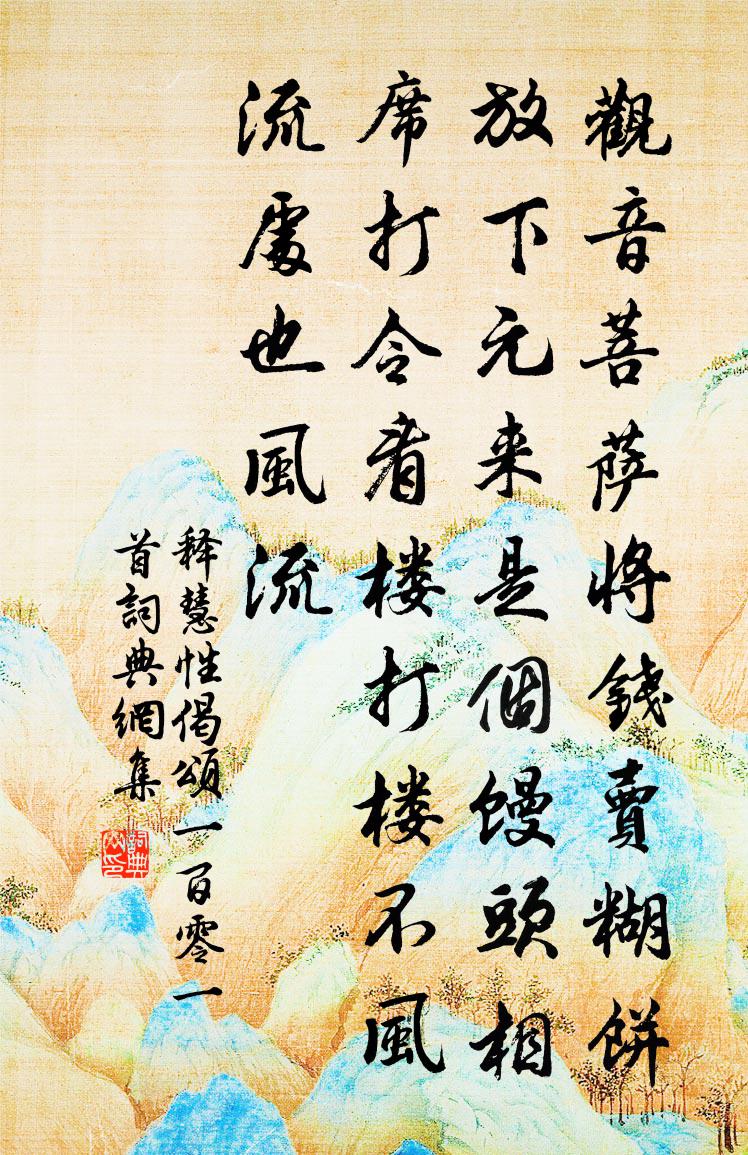 觀音菩萨將錢賣糊餅
放下元来是個饅頭相
席打令看楼打楼不風
流處也風流
释慧性偈頌一百零一
首詞典網集